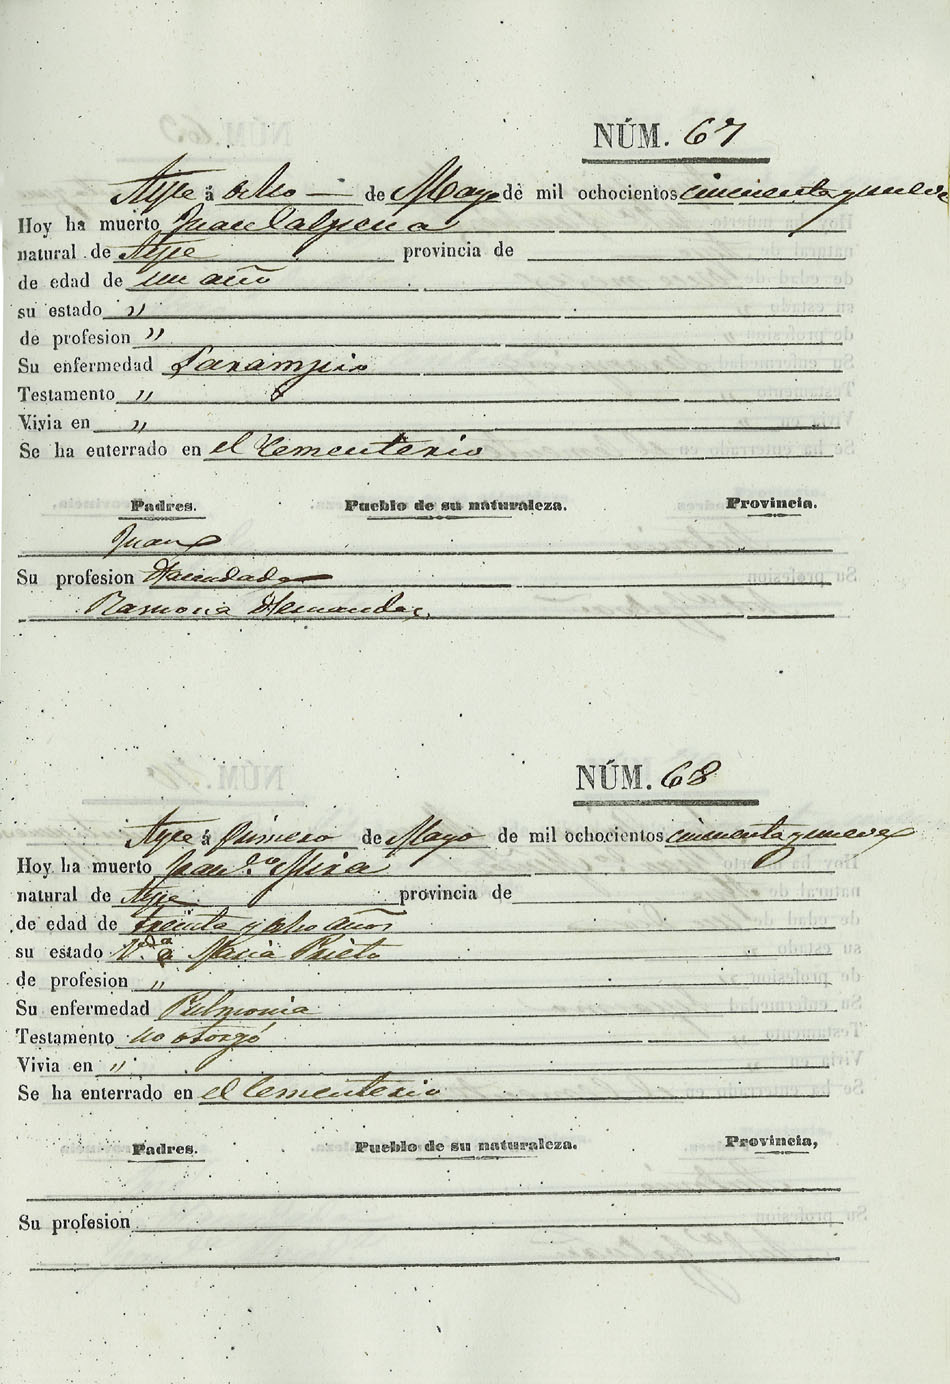 NÚM. 67
Aspe á ocho de Mayo de mil ochocientos cincuenta y nueve
Hoy ha muerto Juan Calpena
natural de Aspe provincia de
de edad de un año
su estado "
de profesion "
Su enfermedad Sarampio
Testamento "
Vivia en "
Se ha enterrado en el Cementerio
Padres. Pueblo de su naturaleza. Provincia.
Juan
Su profesion Hacendado
Ramona Hernandez
NÚM. 68
Aspe á Primero de Mayo de mil ochocientos cincuenta y nueve
Hoy ha muerto Mira
natural de Aspe provincia de
de edad de treinta y ocho años
su estado V.da María Prieto
de profesion "
Su enfermedad Pulmonia
Testamento no otorgó
Vivia en "
Se ha enterrado en el Cementerio
Padres. Pueblo de su naturaleza. Provincia,
Su profesion